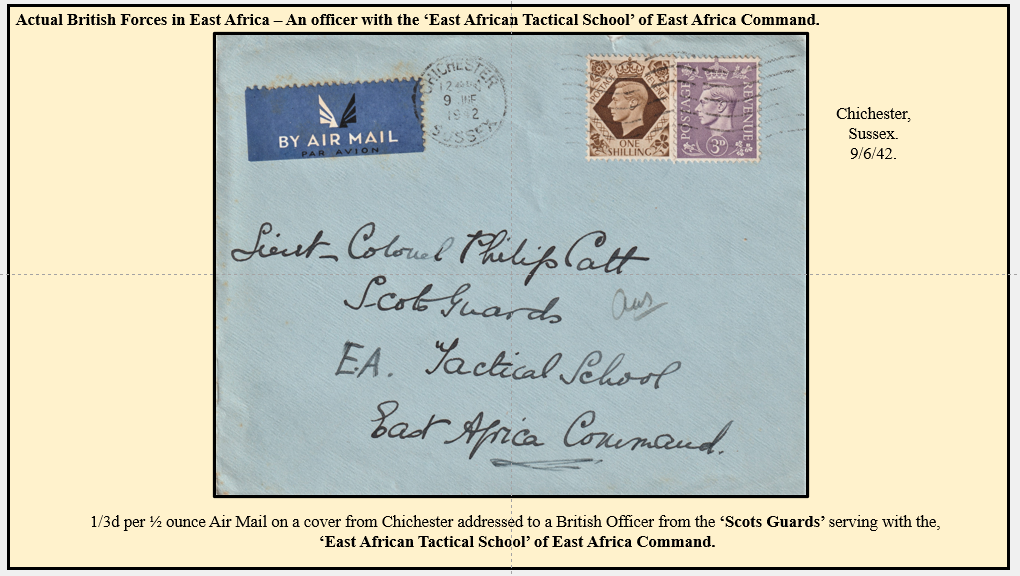 Actual British Forces in East Africa – An officer with the ‘East African Tactical School’ of East Africa Command.
BY AIR MAIL
PAR AVION
CHICHESTER
9 JNE
1942
SUSSEX
POSTAGE REVENUE
ONE
SHILLING
POSTAGE
REVENUE
3D
Chichester,
Sussex.
9/6/42.
Lieut-Colonel Philip Catt
Scots Guards
Ans
E.A. Tactical School
East Africa Command.
1/3d per ½ ounce Air Mail on a cover from Chichester addressed to a British Officer from the ‘Scots Guards’ serving with the,
‘East African Tactical School’ of East Africa Command.